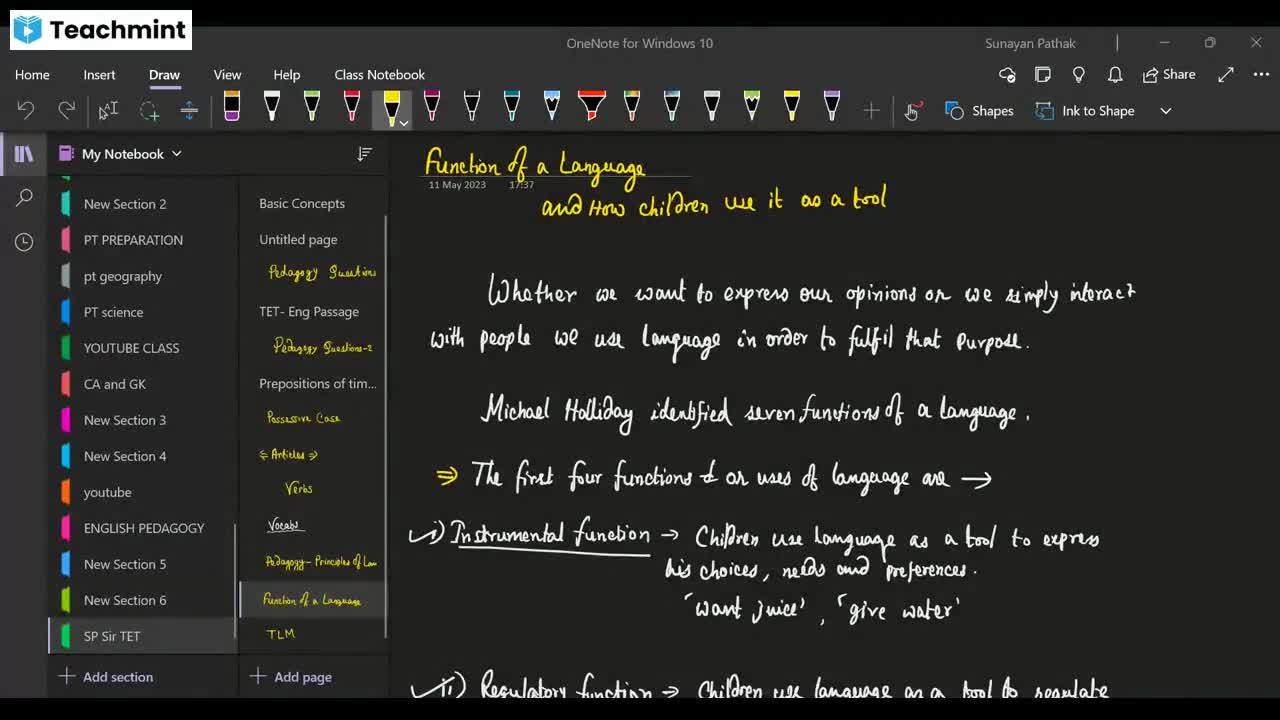 Teachmint
OneNote for Windows 10
Sunayan Pathak
Home Insert Draw View Help Class Notebook
Share
Shapes
Ink to Shape
My Notebook
New Section 2
PT PREPARATION
pt geography
PT science
YOUTUBE CLASS
CA and GK
New Section 3
New Section 4
youtube
ENGLISH PEDAGOGY
New Section 5
New Section 6
SP Sir TET
Add section
Basic Concepts
Untitled page
Pedagogy Questions
TET- Eng Passage
Pedagogy Questions-2
Prepositions of tim...
Possessive Case
Articles
Verbs
Vocabs
Pedagogy- Principles of Lan
Function of a Language
TLM
Add page
Function of a Language
11 May 2023 17:37
and How children use it as a tool
Whether we want to express our opinions or we simply interact
with people we use language in order to fulfil that purpose.
Michael Halliday identified seven functions of a language.
⇒ The first four functions or uses of language are →
i) Instrumental function → Children use language as a tool to express
his choices, needs and preferences.
'want juice', 'give water'
ii) Regulatory function → Children use language as a tool to regulate